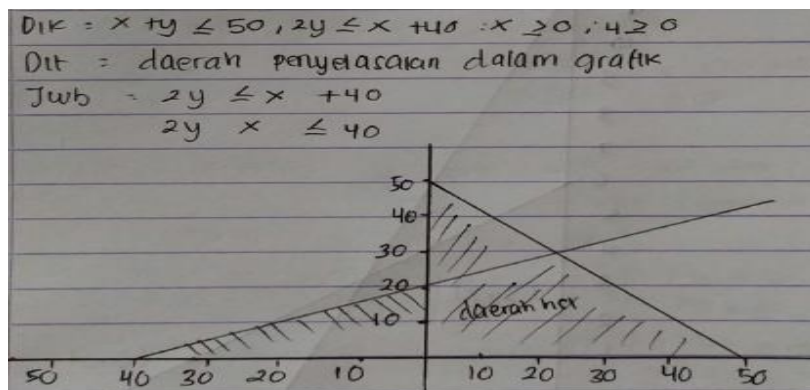 DIK = x + y ≤ 50 , 2y ≤ x + 40 : x ≥ 0 , : 4 ≥ 0
DIt = daerah penyelasaian dalam grafik
Jwb = 2y ≤ x + 40
2y x ≤ 40
50
40
30
20
10
daerah
50 40 30 20 10 10 20 30 40 50